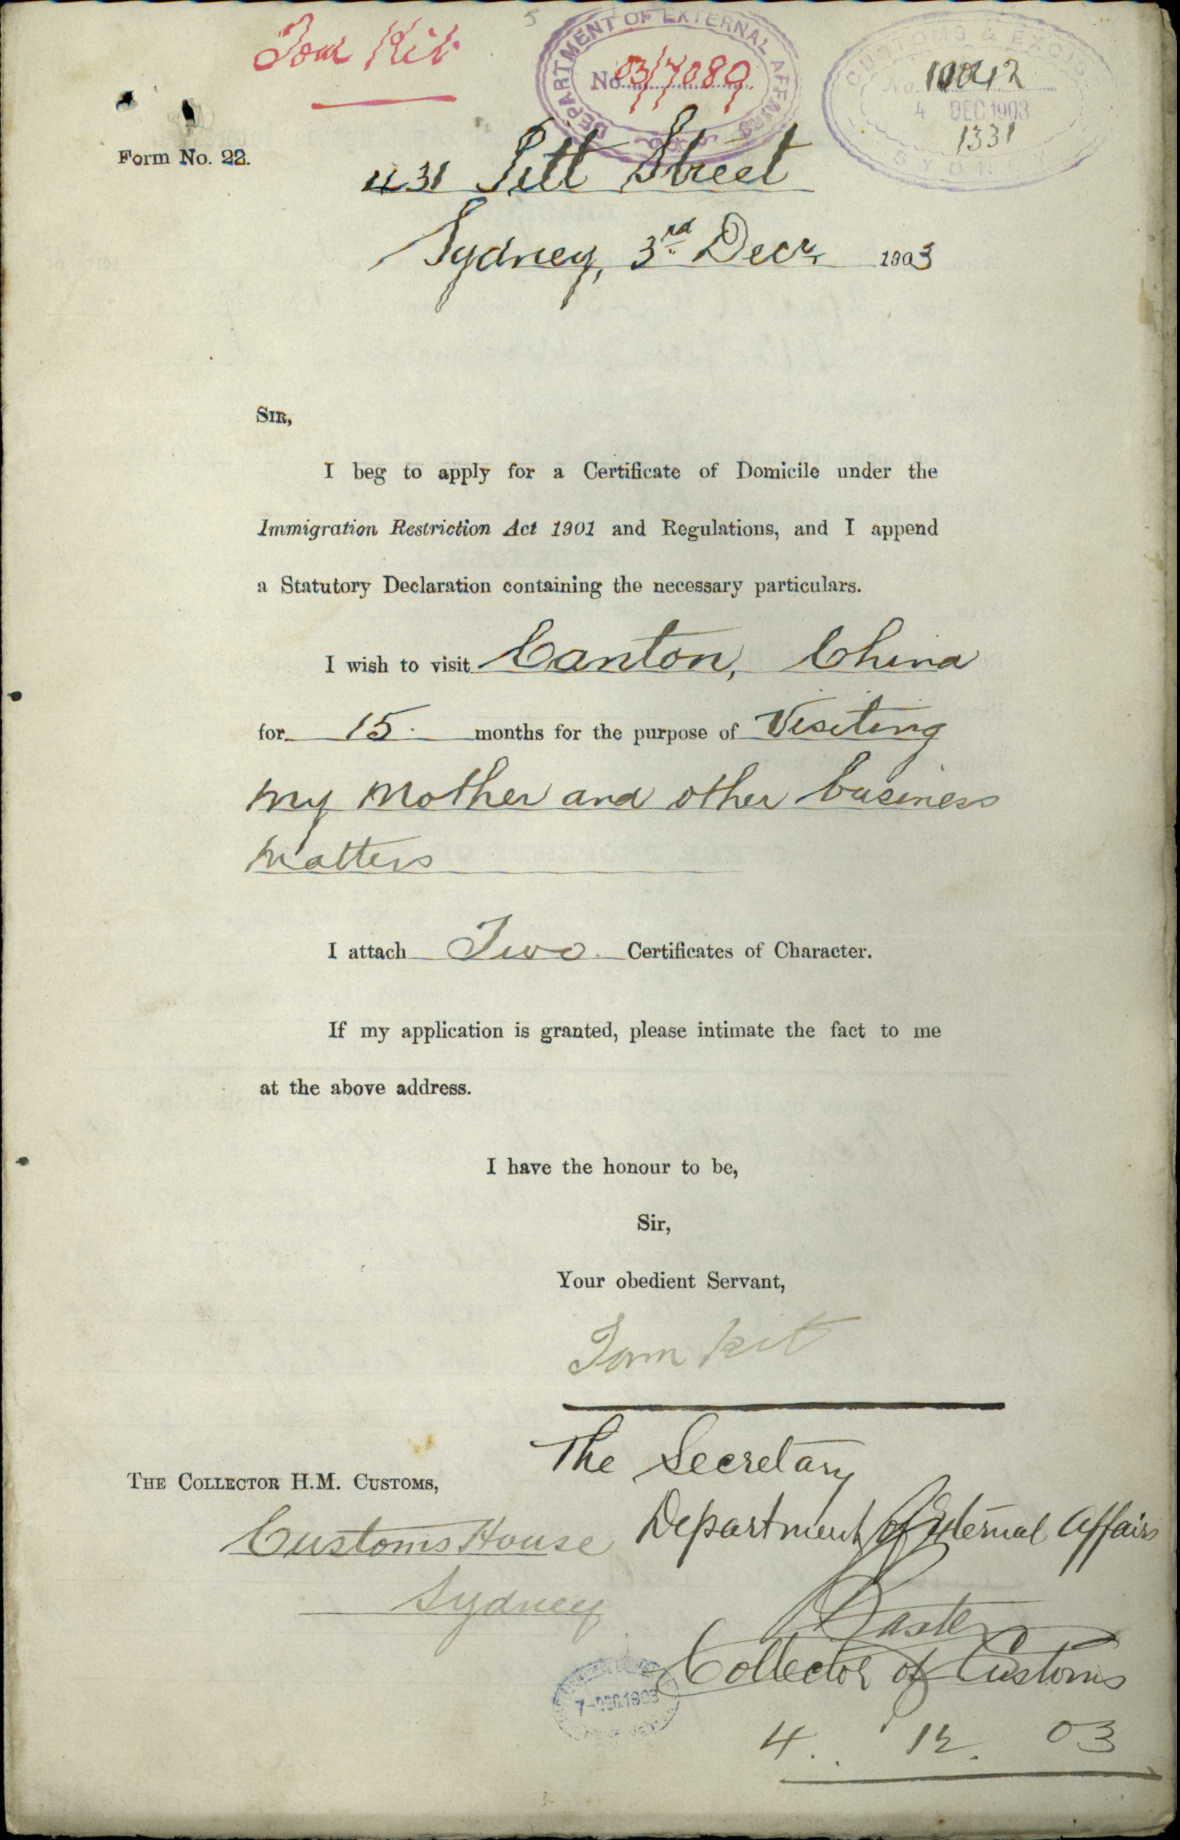 Tom Kit
DEPARTMENT OF EXTERNAL AFFAIRS
No. 03/7089
CUSTOMS & EXCISE
No. 10042
4 DEC 1903
1331
Form No. 22.
431 Pitt Street
Sydney, 3rd Decr 1903
SIR,
I beg to apply for a Certificate of Domicile under the
Immigration Restriction Act 1901 and Regulations, and I append
a Statutory Declaration containing the necessary particulars.
I wish to visit Canton, China
for 15. months for the purpose of Visiting
my Mother and other business
Matters
I attach Two Certificates of Character.
If my application is granted, please intimate the fact to me
at the above address.
I have the honour to be,
Sir,
Your obedient Servant,
Tom Kit
The Secretary
THE COLLECTOR H.M. CUSTOMS,
Department of External Affairs
Customs House
Sydney
Baxter
Collector of Customs
7-DEC 1903
4. 12. 03